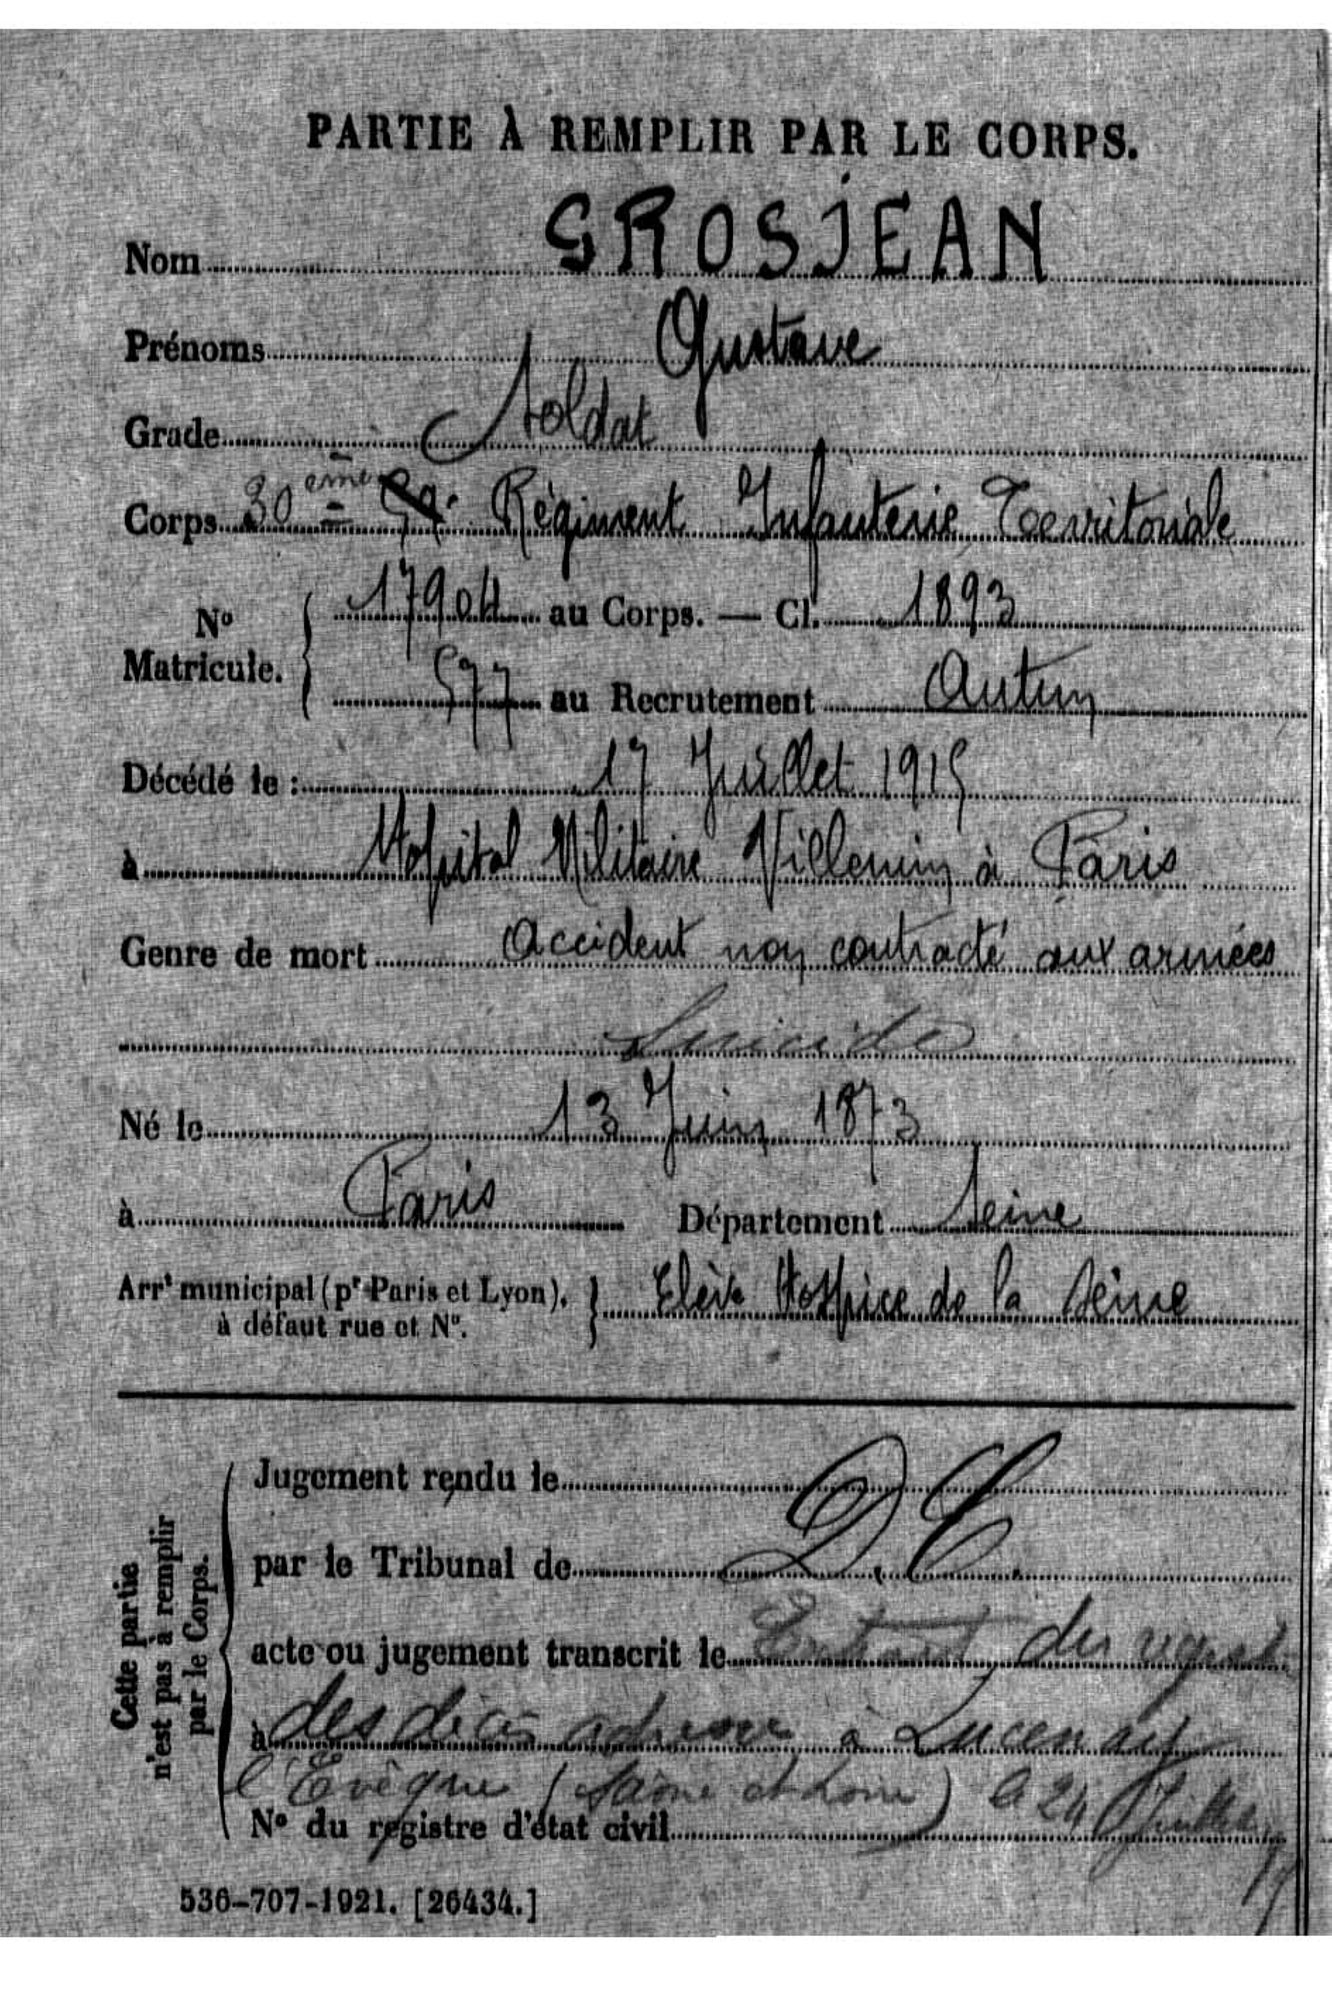 PARTIE À REMPLIR PAR LE CORPS.
Nom GROSJEAN
Prénoms Gustave
Grade Soldat
Corps 30 ème Régiment Infanterie Territoriale
N° Matricule. 17904 au Corps. — Cl. 1893
577 au Recrutement Autun
Décédé le : 17 Juillet 1915
à Hôpital Militaire Villemin à Paris
Genre de mort Accident non contracté aux armées
Suicide
Né le 13 Juin 1873
à Paris Département Seine
Arrt municipal (pr Paris et Lyon), à défaut rue et N°. Elève Hospice de la Seine
Cette partie n'est pas à remplir par le Corps.
Jugement rendu le
par le Tribunal de D. C.
acte ou jugement transcrit le Extrait du
à des décès adressé à Lucenay
l'Evêque (Saône et Loire) le 24 Juillet 15
N° du registre d'état civil
536-707-1921. [26434.]